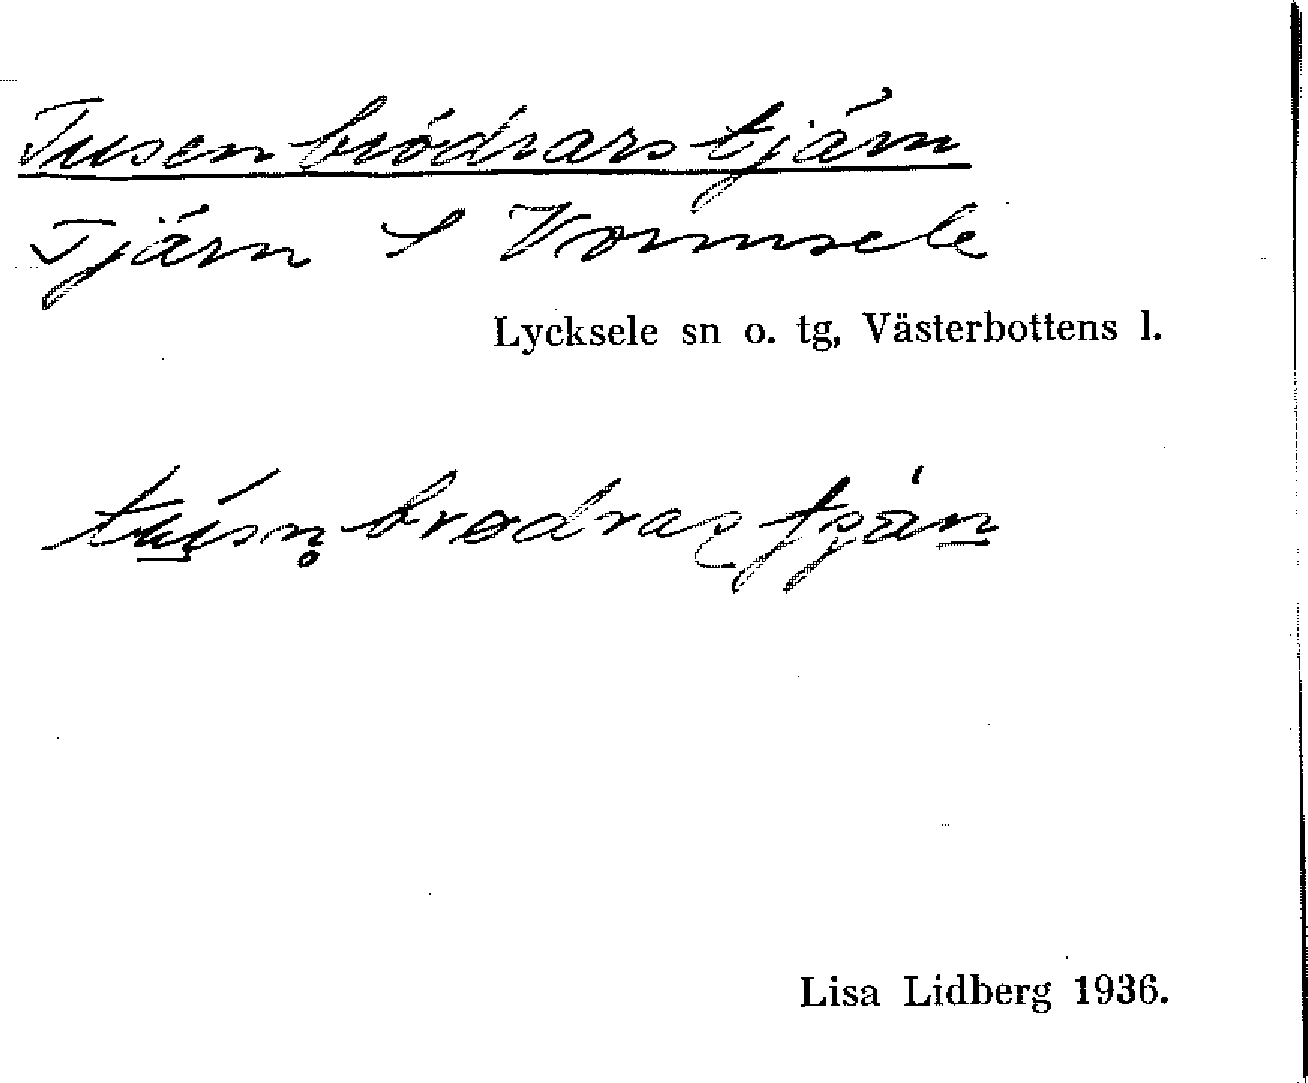 Tusenbrödrarstjärn
Tjärn S Vormsele
Lycksele sn o. tg, Västerbottens l.
Lisa Lidberg 1936.